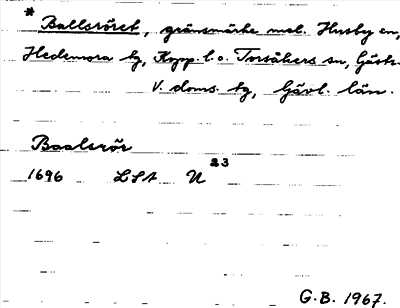 * Ballsröret, gränsmärke mel. Husby sn,
Hedemora tg, Kopp. l. o. Torsåkers sn, Gästr.
V. doms. tg, Gävl. län.
Baalsrör
1696 LSA U 23
G.B. 1967.